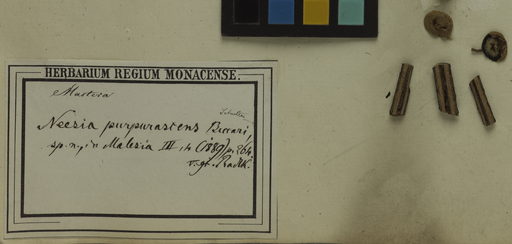 HERBARIUM REGIUM MONACENSE.
Neesia purpurascens Beccari,
sp. n., in Malesia III, 4 (1889) p. 264
v. gt. Radlk.